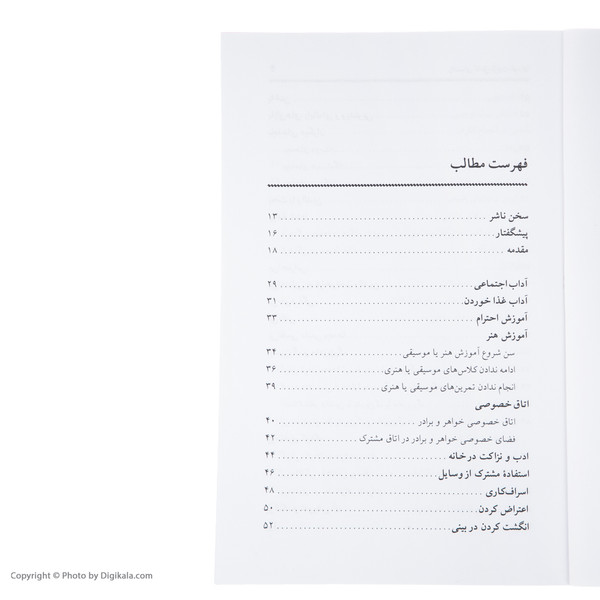 فهرست مطالب
سخن ناشر ........ ۱۳
پیشگفتار ........ ۱۶
مقدمه ........ ۱۸
آداب اجتماعی ........ ۲۹
آداب غذا خوردن ........ ۳۱
آموزش احترام ........ ۳۳
آموزش هنر
سن شروع آموزش هنر یا موسیقی ........ ۳۴
ادامه ندادن کلاس‌های موسیقی یا هنری ........ ۳۶
انجام ندادن تمرین‌های موسیقی یا هنری ........ ۳۹
اتاق خصوصی
اتاق خصوصی خواهر و برادر ........ ۴۰
فضای خصوصی خواهر و برادر در اتاق مشترک ........ ۴۲
ادب و نزاکت در خانه ........ ۴۴
استفادهٔ مشترک از وسایل ........ ۴۶
اسراف‌کاری ........ ۴۸
اعتراض کردن ........ ۵۰
انگشت کردن در بینی ........ ۵۲
Copyright © Photo by Digikala.com